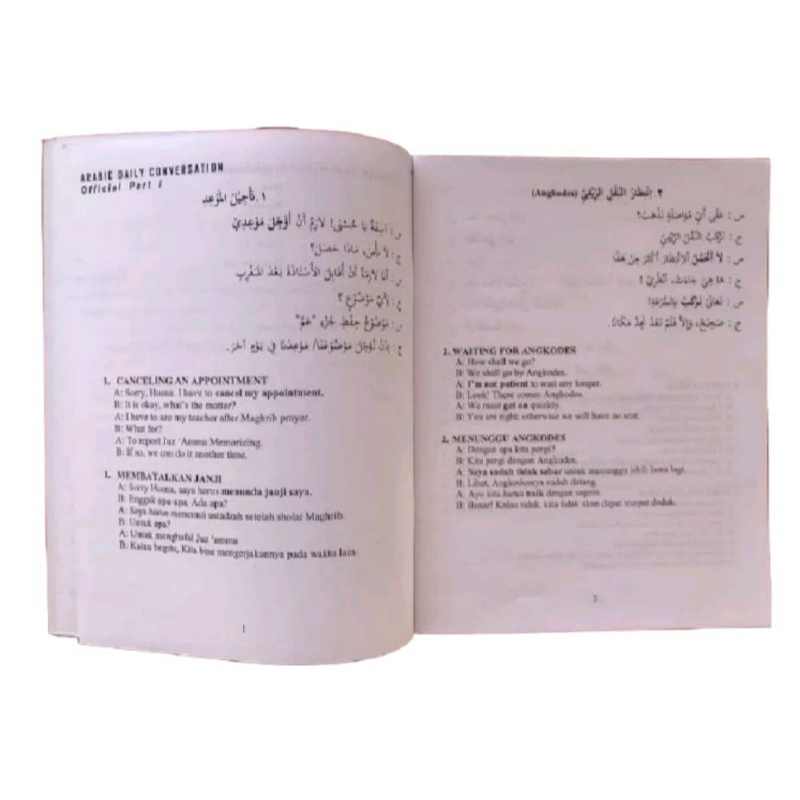 ARABIC DAILY CONVERSATION
Official Part I
١. تَأْجِيْلُ المَوْعِدِ
س : آسِفَةٌ يَا حُسْنَى! لَازِمٌ أَنْ أُؤَجِّلَ مَوْعِدِيْ
ج : لَا بَأْسَ، مَاذَا حَصَلَ؟
س : أَنَا لَازِمًا أَنْ أُقَابِلَ الأُسْتَاذَةَ بَعْدَ المَغْرِبِ
ج : لِأَيِّ مَوْضُوْعٍ ؟
س : مَوْضُوْعُ حِفْظِ جُزْءِ "عَمَّ"
ج : مَوْعِدُنَا فِي يَوْمٍ آخَرَ.
1. CANCELING AN APPOINTMENT
A: Sorry, Husna. I have to cancel my appointment.
B: It is okay, what's the matter?
A: I have to see my teacher after Maghrib prayer.
B: What for?
A: To report Juz 'Amma Memorizing.
B: If so, we can do it another time.
1. MEMBATALKAN JANJI
A: Sorry Husna, saya harus menunda janji saya.
B: Enggak apa-apa, Ada apa?
A: Saya harus menemui ustadzah setelah sholat Maghrib.
B: Untuk apa?
A: Untuk menghafal Juz 'amma
B: Kalau begitu, Kita bisa mengerjakannya pada waktu lain.
1
٢. اِنْتِظَارُ النَّقْلِ الرِّيْفِيِّ (Angkodes)
س : عَلَى أَيِّ مُوَاصَلَةٍ نَذْهَبُ؟
ج : نَرْكَبُ النَّقْلَ الرِّيْفِيَّ
س : لَا أَتَحَمَّلُ الاِنْتِظَارَ أَكْثَرَ مِنْ هَذَا
ج : هَا هِيَ جَاءَتْ، اُنْظُرِيْ !
س : تَعَالَيْ نَرْكَبْ بِالسُّرْعَةِ!
ج : صَحِيْحٌ، وَإِلَّا فَلَمْ نَجِدْ مَكَانًا.
2. WAITING FOR ANGKODES
A: How shall we go?
B: We shall go by Angkodes.
A: I'm not patient to wait any longer.
B: Look! There comes Angkodes.
A: We must get on quickly.
B: You are right; otherwise we will have no seat.
2. MENUNGGU ANGKODES
A: Dengan apa kita pergi?
B: Kita pergi dengan Angkodes.
A: Saya sudah tidak sabar untuk menunggu lebih lama lagi.
B: Lihat, Angkodesnya sudah datang.
A: Ayo kita harus naik dengan segera.
B: Benar! Kalau tidak, kita tidak akan dapat tempat duduk.
2